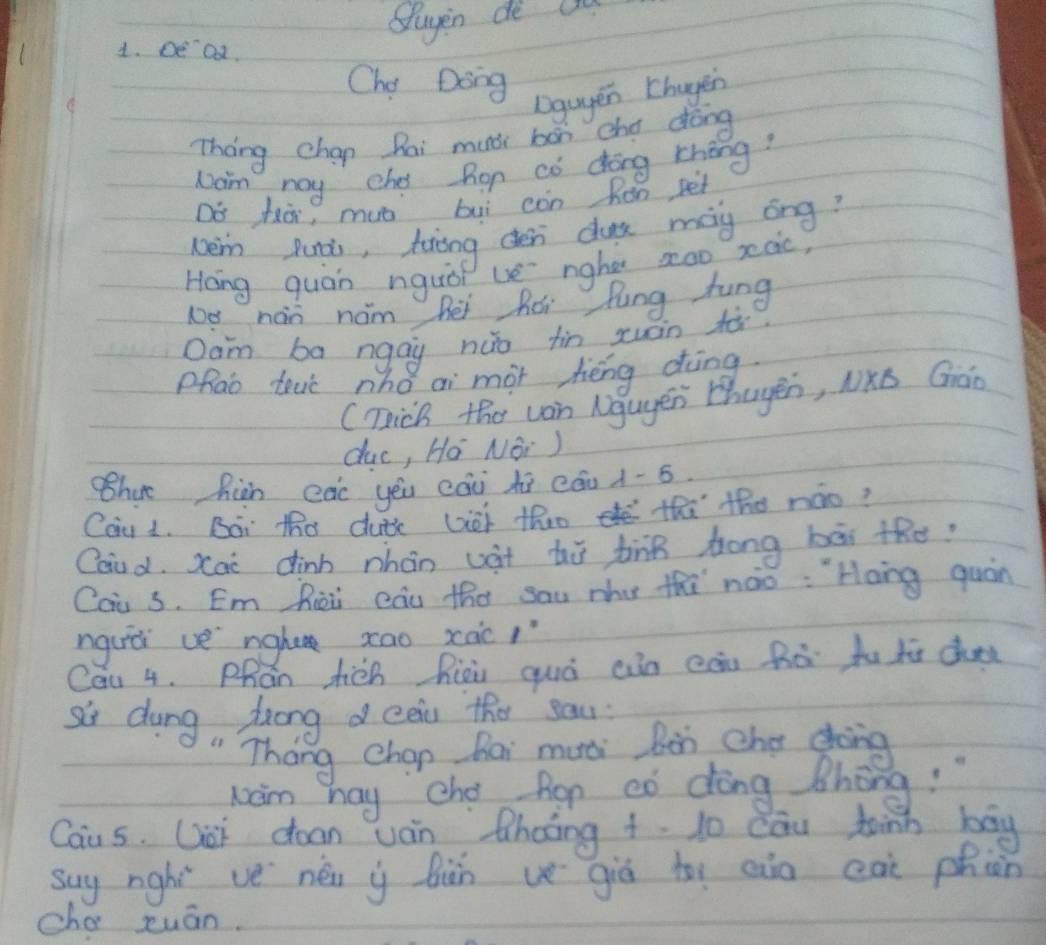 Luyện đề
1. Đề 02.
Chợ Đồng
Nguyễn Khuyến
Tháng chạp hai mươi bốn chợ đồng
Năm nay chợ họp có đông không?
Dở trời, mưa bụi còn hơn rét
Nếm rượu, tường đền được mấy ông?
Hàng quán người về nghe xao xác,
Nợ nần năm hết hỏi lung tung
Dăm ba ngày nữa tin xuân tới.
Pháo trúc nhà ai một tiếng đùng.
(Trích thơ văn Nguyễn Khuyến, NXB Giáo
dục, Hà Nội)
Thực hiện các yêu cầu từ câu 1-5.
Câu 1. Bài thơ được viết theo thể thơ nào?
Câu 2. Xác định nhân vật trữ tình trong bài thơ?
Câu 3. Em hiểu câu thơ sau như thế nào: "Hàng quán
người về nghe xao xác,"
Câu 4. Phân tích hiệu quả của câu hỏi tu từ được
sử dụng trong 2 câu thơ sau:
"Tháng chạp hai mươi bốn chợ đồng
Năm nay chợ họp có đông không?"
Câu 5. Viết đoạn văn khoảng 7-10 câu trình bày
suy nghĩ về nêu ý kiến về giá trị của các phiên
chợ xuân.